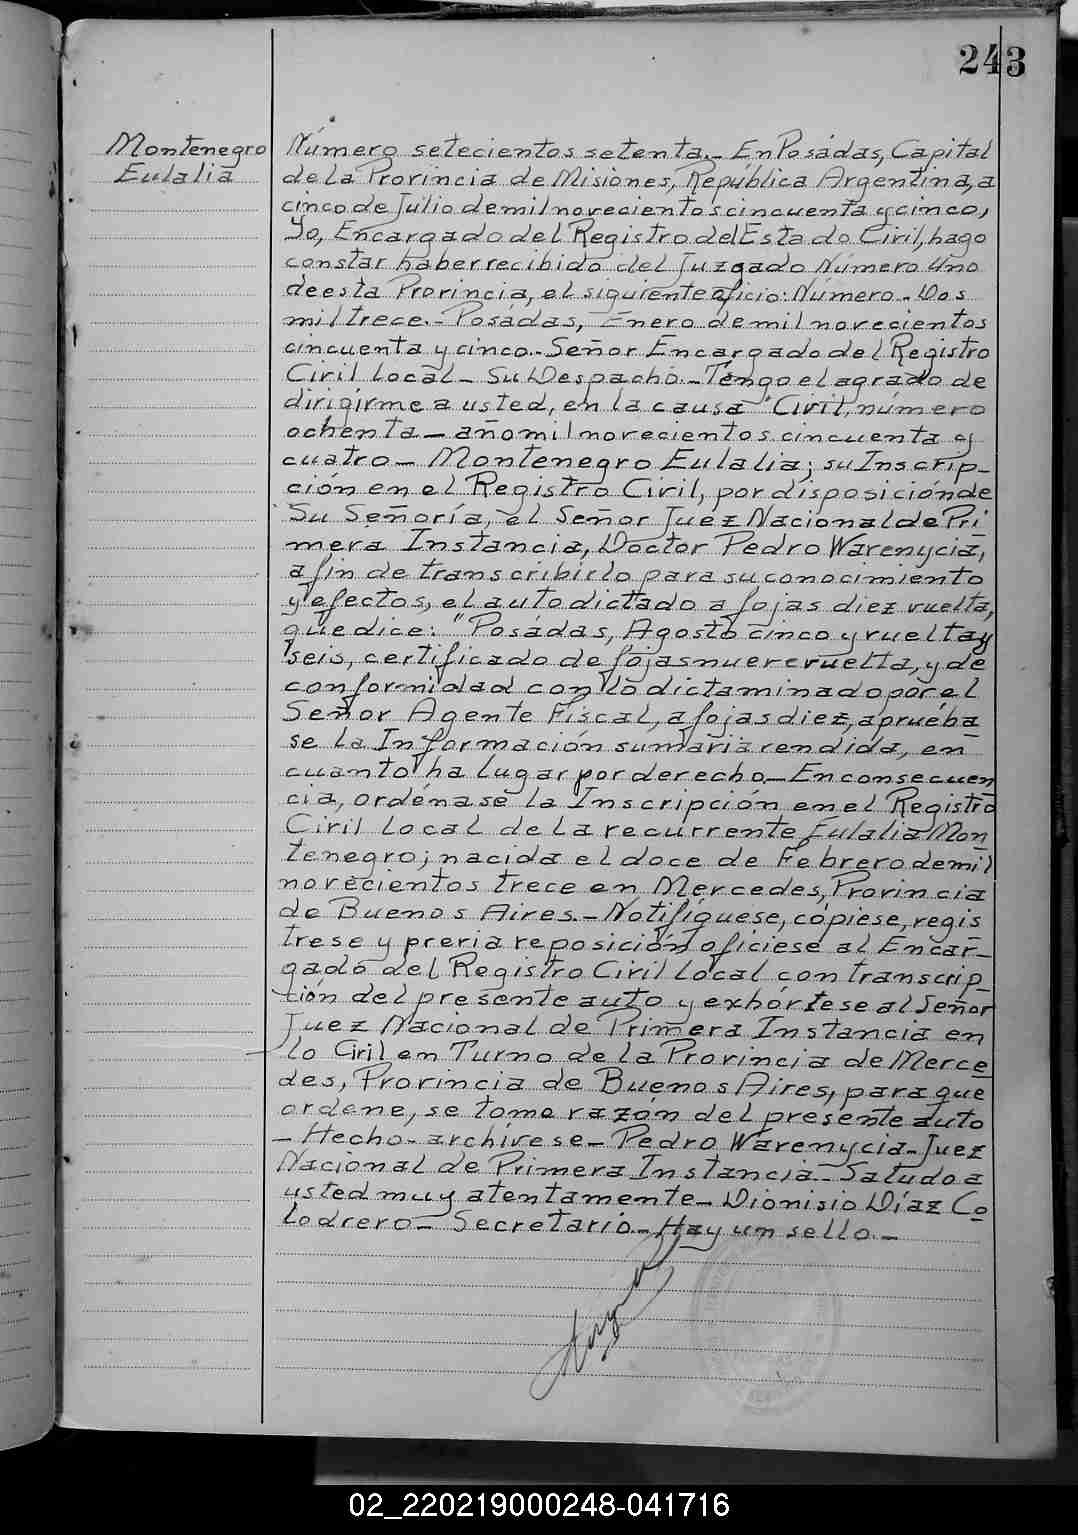 243
Montenegro
Eulalia
Número setecientos setenta.- En Posádas, Capital
de la Provincia de Misiones, República Argentina, a
cinco de Julio de mil novecientos cincuenta y cinco,
Yo, Encargado del Registro del Estado Civil, hago
constar haber recibido del Juzgado Número Uno
de esta Provincia, el siguiente oficio: Número - Dos
mil trece.- Posádas, Enero de mil novecientos
cincuenta y cinco.- Señor Encargado del Registro
Civil Local - Su Despacho.- Tengo el agrado de
dirigirme a usted, en la causa "Civil, número
ochenta - año mil novecientos cincuenta y
cuatro - Montenegro Eulalia; su Inscrip-
ción en el Registro Civil, por disposición de
Su Señoría, el Señor Juez Nacional de Pri
mera Instancia, Doctor Pedro Warenycia,
a fin de transcribirlo para su conocimiento
y efectos, el auto dictado a fojas diez vuelta,
que dice: "Posádas, Agosto cinco y vuelta y
seis, certificado de fojas nueve vuelta, y de
conformidad con lo dictaminado por el
Señor Agente Fiscal, a fojas diez, apruéba
se la Información sumaria rendida, en
cuanto ha lugar por derecho.- En consecuen
cia, ordénase la Inscripción en el Registro
Civil Local de la recurrente Eulalia Mon
tenegro; nacida el doce de Febrero de mil
novecientos trece en Mercedes, Provincia
de Buenos Aires.- Notifíquese, cópiese, regis
trese y previa reposición ofíciese al Encar-
gado del Registro Civil Local con transcrip-
ción del presente auto y exhórtese al Señor
Juez Nacional de Primera Instancia en
lo Civil en Turno de la Provincia de Merce
des, Provincia de Buenos Aires, para que
ordene, se tome razón del presente auto
- Hecho - archívese - Pedro Warenycia - Juez
Nacional de Primera Instancia.- Saludo a
usted muy atentamente - Dionisio Díaz Co
lodrero - Secretario - Hay un sello.-
02_220219000248-041716